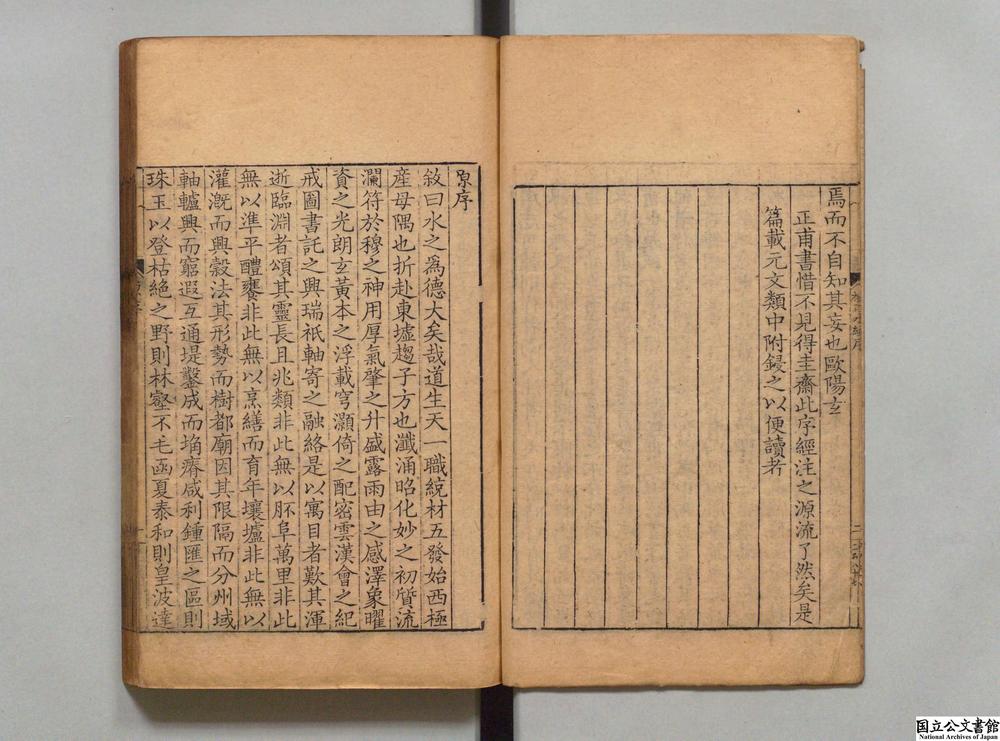 焉而不自知其妄也歐陽玄
正甫書惜不見得圭齋此序經注之源流了然矣是
篇載元文類中附鋟之以便讀者
原序
敘曰水之爲德大矣哉道生天一職統材五發始西極
産母隅也折赴東墟趨子方也瀸涌昭化妙之初質流
瀾符於穆之神用厚氣肇之升盛露雨由之感澤象曜
資之光朗玄黃本之浮載穹灝倚之配密雲漢會之紀
戒圖書託之興瑞祇軸寄之融絡是以寓目者歎其渾
逝臨淵者頌其靈長且兆類非此無以胚阜萬里非此
無以準平醴饔非此無以烹繕而育年壤壚非此無以
灌漑而興穀法其形勢而樹都廟因其限隔而分州域
軸轤興而窮遐互通堤鑿成而堉瘠咸利鍾匯之區則
珠玉以登枯絶之野則林壑不毛函夏泰和則皇波達
国立公文書館
National Archives of Japan